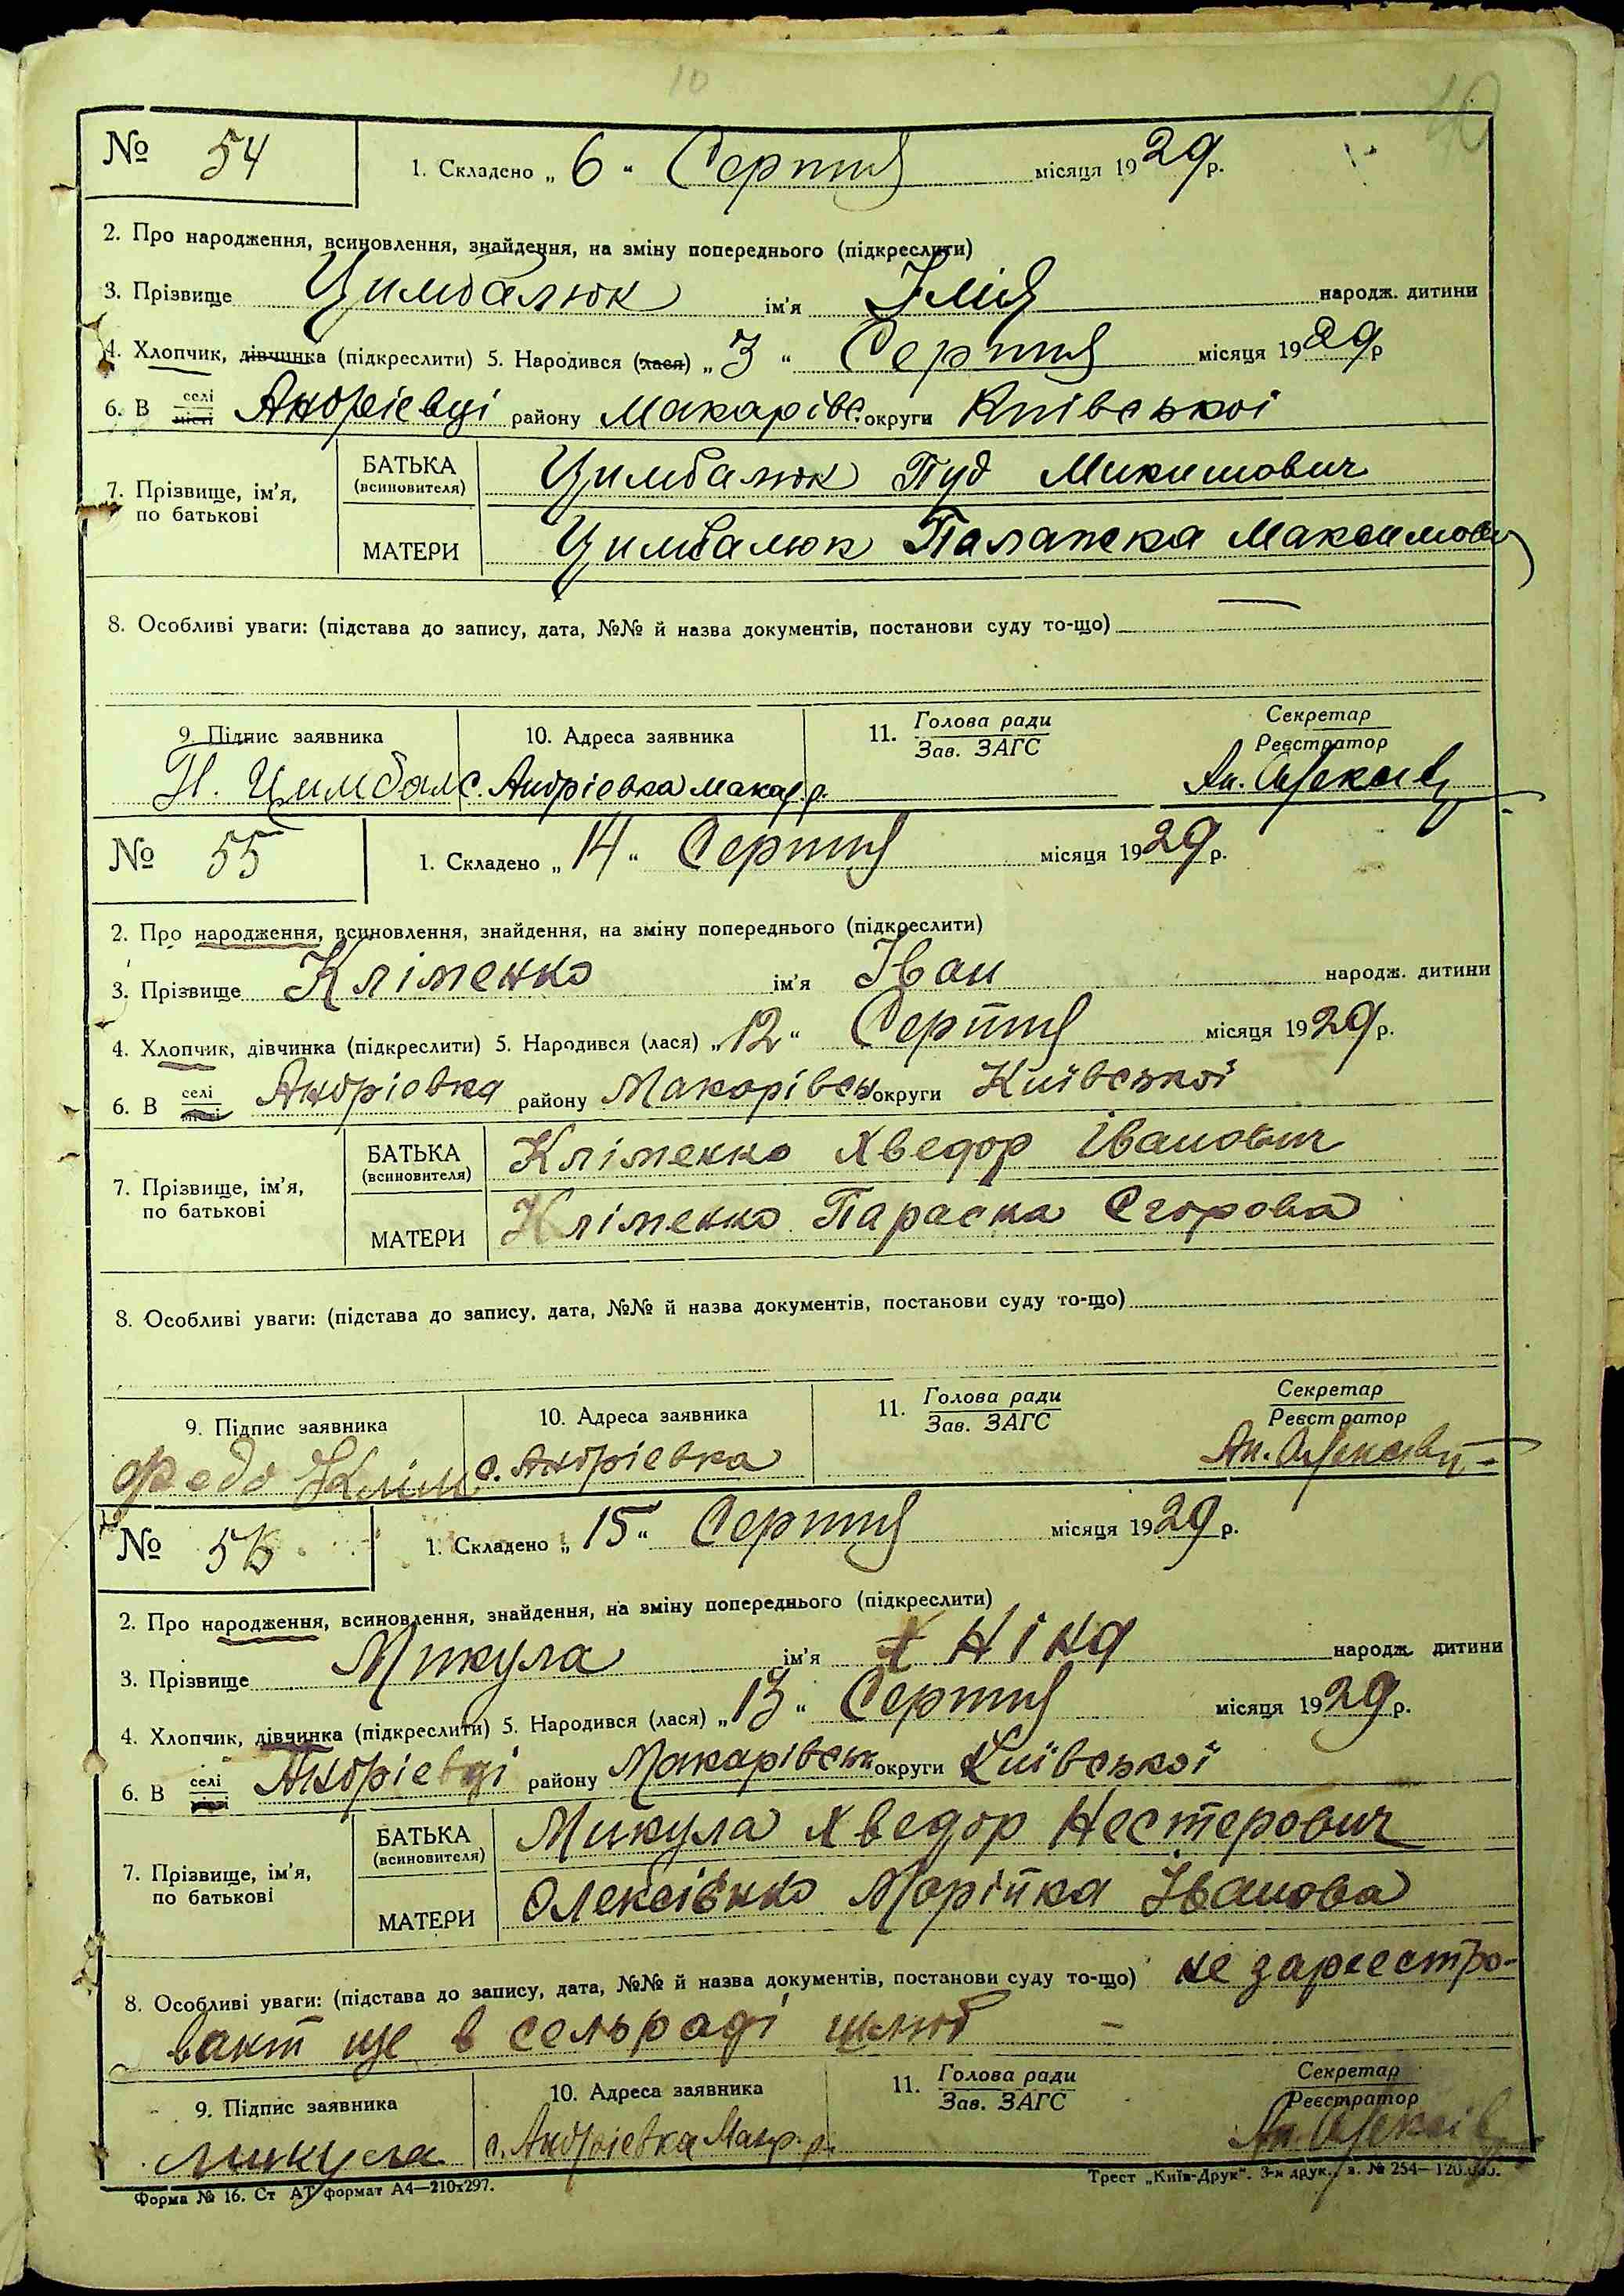 10
№ 54
1. Складено „ 6 “ Серпня місяця 1929 р.
2. Про народження, всиновлення, знайдення, на зміну попереднього (підкреслити)
3. Прізвище Цимбалюк ім'я Ілія народж. дитини
4. Хлопчик, дівчинка (підкреслити) 5. Народився (лася) „ 3 “ Серпня місяця 1929 р
6. В селі місті Андрієвці району Макарівс. округи Київської
7. Прізвище, ім'я, по батькові
БАТЬКА (всиновителя) Цимбалюк Пуд Микитович
МАТЕРИ Цимбалюк Палажка Максимов
8. Особливі уваги: (підстава до запису, дата, №№ й назва документів, постанови суду то-що)
9. Підпис заявника 10. Адреса заявника 11. Голова ради Зав. ЗАГС Секретар Реєстратор
П. Цимбал с. Андрієвка макар. р.
№ 55
1. Складено „ 14 “ Серпня місяця 1929 р.
2. Про народження, всиновлення, знайдення, на зміну попереднього (підкреслити)
3. Прізвище Кліменко ім'я Іван народж. дитини
4. Хлопчик, дівчинка (підкреслити) 5. Народився (лася) „ 12 “ Серпня місяця 1929 р.
6. В селі місті Андрієвка району Макарівськ округи Київської
7. Прізвище, ім'я, по батькові
БАТЬКА (всиновителя) Кліменко Хведор Іванович
МАТЕРИ Кліменко Параска Єгорова
8. Особливі уваги: (підстава до запису, дата, №№ й назва документів, постанови суду то-що)
9. Підпис заявника 10. Адреса заявника 11. Голова ради Зав. ЗАГС Секретар Реєстратор
Федо Клім с. Андрієвка
№ 56
1. Складено „ 15 “ Серпня місяця 1929 р.
2. Про народження, всиновлення, знайдення, на зміну попереднього (підкреслити)
3. Прізвище Микула ім'я Ніна народж. дитини
4. Хлопчик, дівчинка (підкреслити) 5. Народився (лася) „ 13 “ Серпня місяця 1929 р.
6. В селі Андрієвці району Макарівськ округи Київської
7. Прізвище, ім'я, по батькові
БАТЬКА (всиновителя) Микула Хведор Нестерович
МАТЕРИ Олексієнко Марійка Іванова
8. Особливі уваги: (підстава до запису, дата, №№ й назва документів, постанови суду то-що) не зареєстро-
ван ще в сельраді шлюб
9. Підпис заявника 10. Адреса заявника 11. Голова ради Зав. ЗАГС Секретар Реєстратор
Микула с. Андрієвка Макр. р.
Форма № 16. Ст АТ формат А4—210х297. Трест „Київ-Друк“. 3-я друк., з. № 254—120.000.